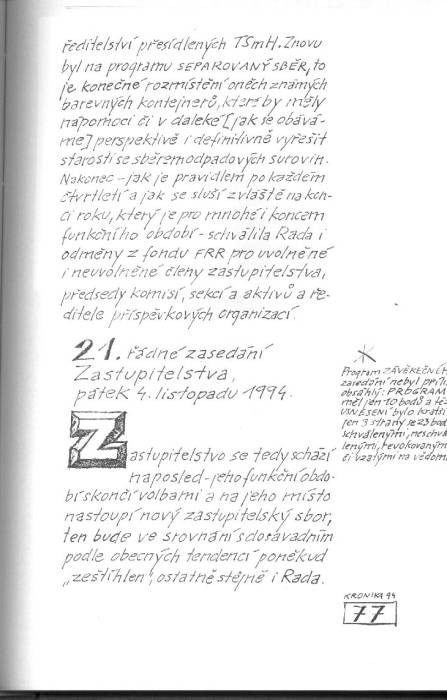 ředitelství přesídlených TSmH. Znovu
byl na programu SEPAROVANÝ SBĚR, to
je konečné rozmístění oněch známých
barevných kontejnerů, které by měly
napomoci či v daleké [jak se obává-
me] perspektivě i definitivně vyřešit
starosti se sběrem odpadových surovin.
Nakonec - jak je pravidlem po každém
čtvrtletí a jak se sluší zvláště na kon-
ci roku, který je pro mnohé i koncem
funkčního období - schválila Rada i
odměny z fondu FRR pro uvolněné
i neuvolněné členy zastupitelstva,
předsedy komisí, sekcí a aktivů a ře-
ditele příspěvkových organizací.
21. řádné zasedání
Zastupitelstva,
pátek 4. listopadu 1994.
Zastupitelstvo se tedy schází
naposled - jeho funkční obdo-
bí skončí volbami a na jeho místo
nastoupí nový zastupitelský sbor,
ten bude ve srovnání s dosavadním
podle obecných tendencí poněkud
„zeštíhlen“, ostatně stejně i Rada.
Program ZÁVĚREČNÉH
zasedání nebyl příli
obsáhlý: PROGRAM
měl jen 10 bodů a té
USNESENÍ bylo kratš
jen 3 strany se 23 bod
schválenými, neschvá
lenými, revokovaným
či vzatými na vědom
KRONIKA 94
77